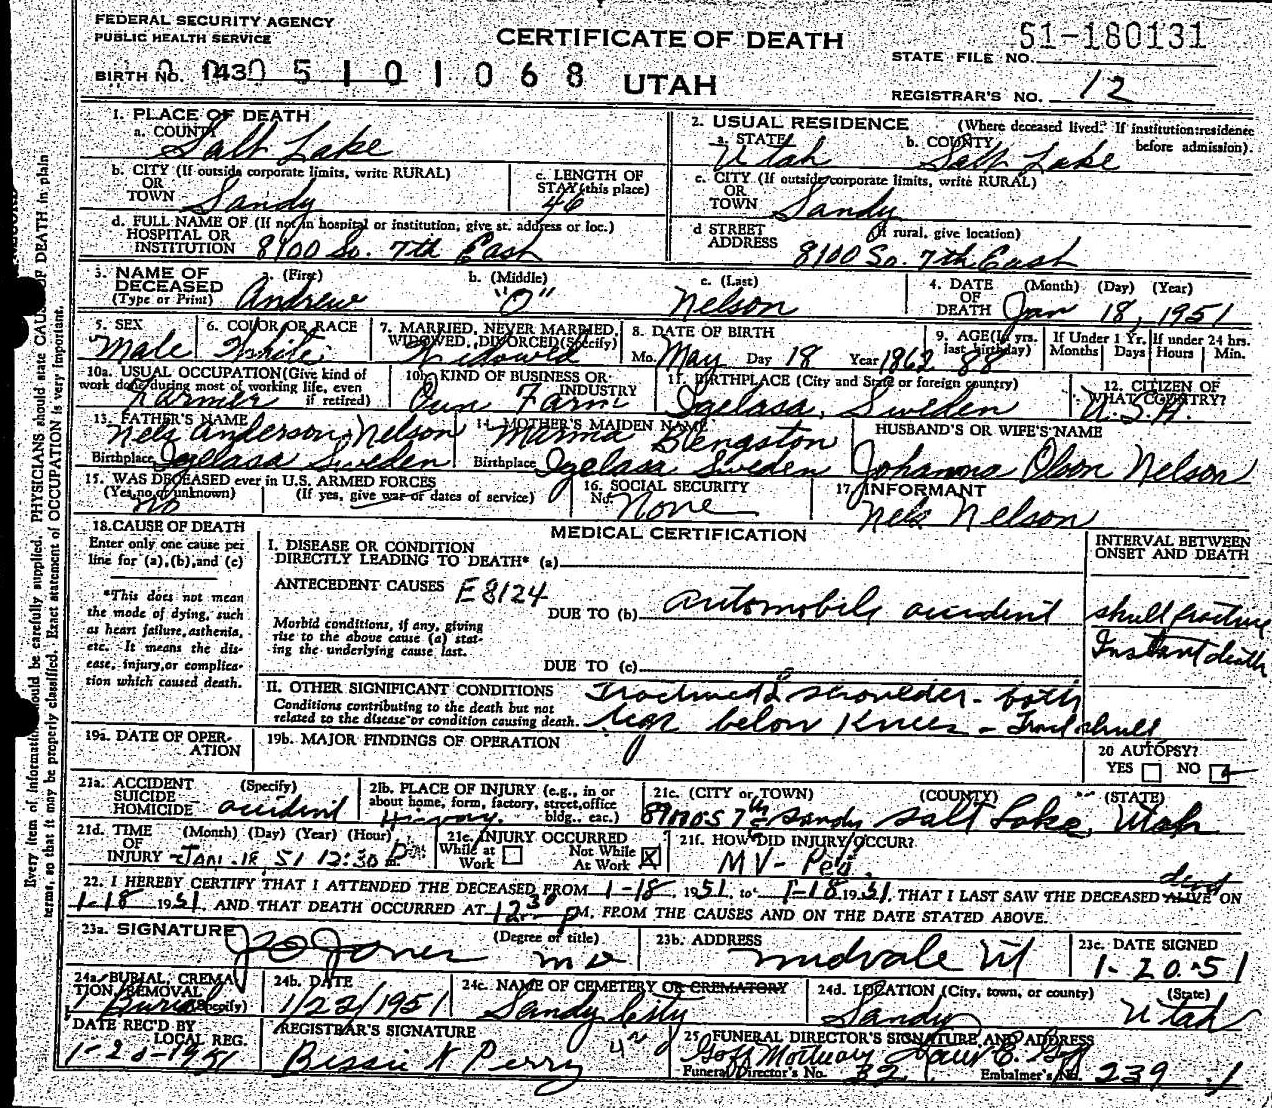 FEDERAL SECURITY AGENCY
PUBLIC HEALTH SERVICE
CERTIFICATE OF DEATH
51-180131
STATE FILE NO.
BIRTH NO. 1430 5 1 0 1 0 6 8 UTAH
REGISTRAR'S NO. 12
1. PLACE OF DEATH
a. COUNTY Salt Lake
2. USUAL RESIDENCE (Where deceased lived. If institution: residence before admission).
a. STATE Utah b. COUNTY Salt Lake
b. CITY (If outside corporate limits, write RURAL) OR TOWN Sandy
c. LENGTH OF STAY (this place) 46
c. CITY (If outside corporate limits, write RURAL) OR TOWN Sandy
d. FULL NAME OF (If not in hospital or institution, give st. address or loc.) HOSPITAL OR INSTITUTION 8100 So. 7th East
d STREET ADDRESS (If rural, give location) 8100 So. 7th East
3. NAME OF DECEASED (Type or Print) a. (First) Andrew b. (Middle) "O" c. (Last) Nelson
4. DATE OF DEATH (Month) (Day) (Year) Jan 18, 1951
5. SEX Male
6. COLOR OR RACE White
7. MARRIED, NEVER MARRIED, WIDOWED, DIVORCED (Specify) Widowed
8. DATE OF BIRTH Mo. May Day 18 Year 1862
9. AGE (In yrs. last birthday) 88
If Under 1 Yr. Months Days
If under 24 hrs. Hours Min.
10a. USUAL OCCUPATION (Give kind of work done during most of working life, even if retired) Farmer
10b. KIND OF BUSINESS OR INDUSTRY Own Farm
11. BIRTHPLACE (City and State or foreign country) Igelasa, Sweden
12. CITIZEN OF WHAT COUNTRY? U.S.A.
13. FATHER'S NAME Nels Anderson Nelson
Birthplace Igelasa Sweden
14. MOTHER'S MAIDEN NAME Bengston
Birthplace Igelasa Sweden
HUSBAND'S OR WIFE'S NAME
Johanna Olson Nelson
15. WAS DECEASED ever in U.S. ARMED FORCES (Yes, no, or unknown) (If yes, give war or dates of service) no
16. SOCIAL SECURITY No. None
17. INFORMANT Nels Nelson
18. CAUSE OF DEATH
Enter only one cause per line for (a), (b), and (c)
*This does not mean the mode of dying, such as heart failure, asthenia, etc. It means the disease, injury, or complication which caused death.
MEDICAL CERTIFICATION
INTERVAL BETWEEN ONSET AND DEATH
I. DISEASE OR CONDITION DIRECTLY LEADING TO DEATH* (a)
ANTECEDENT CAUSES E8124
DUE TO (b) automobile accident
skull fracture
Instant death
Morbid conditions, if any, giving rise to the above cause (a) stating the underlying cause last.
DUE TO (c)
II. OTHER SIGNIFICANT CONDITIONS
Conditions contributing to the death but not related to the disease or condition causing death.
shoulder - both
legs below knees - Fract skull
19a. DATE OF OPERATION
19b. MAJOR FINDINGS OF OPERATION
20 AUTOPSY? YES NO
21a. ACCIDENT SUICIDE HOMICIDE (Specify) accident
21b. PLACE OF INJURY (e.g., in or about home, form, factory, street, office bldg., eac.) Hiway
21c. (CITY or TOWN) (COUNTY) (STATE) Sandy Salt Lake, Utah
21d. TIME OF INJURY (Month) (Day) (Year) (Hour) Jan. 18 51 12:30 P
21e. INJURY OCCURRED While at Work Not While At Work
21f. HOW DID INJURY OCCUR? MV-Ped.
22. I HEREBY CERTIFY THAT I ATTENDED THE DECEASED FROM 1-18 1951, to 1-18 1951, THAT I LAST SAW THE DECEASED ALIVE dead ON
1-18 1951, AND THAT DEATH OCCURRED AT 12 30 P M, FROM THE CAUSES AND ON THE DATE STATED ABOVE.
23a. SIGNATURE (Degree or title) Jones M D
23b. ADDRESS Midvale Ut
23c. DATE SIGNED 1-20-51
24a. BURIAL, CREMATION, REMOVAL (Specify) Burial
24b. DATE 1/22/1951
24c. NAME OF CEMETERY OR CREMATORY Sandy City
24d. LOCATION (City, town, or county) (State) Sandy Utah
DATE REC'D BY LOCAL REG.
REGISTRAR'S SIGNATURE Bessie N Perry
25 FUNERAL DIRECTOR'S SIGNATURE AND ADDRESS
Goff Mortuary
Funeral Director's No. 32 Embalmer's No. 239
Every item of information should be carefully supplied. PHYSICIANS should state CAUSE OF DEATH in plain
terms, so that it may be properly classified. Exact statement of OCCUPATION is very important.